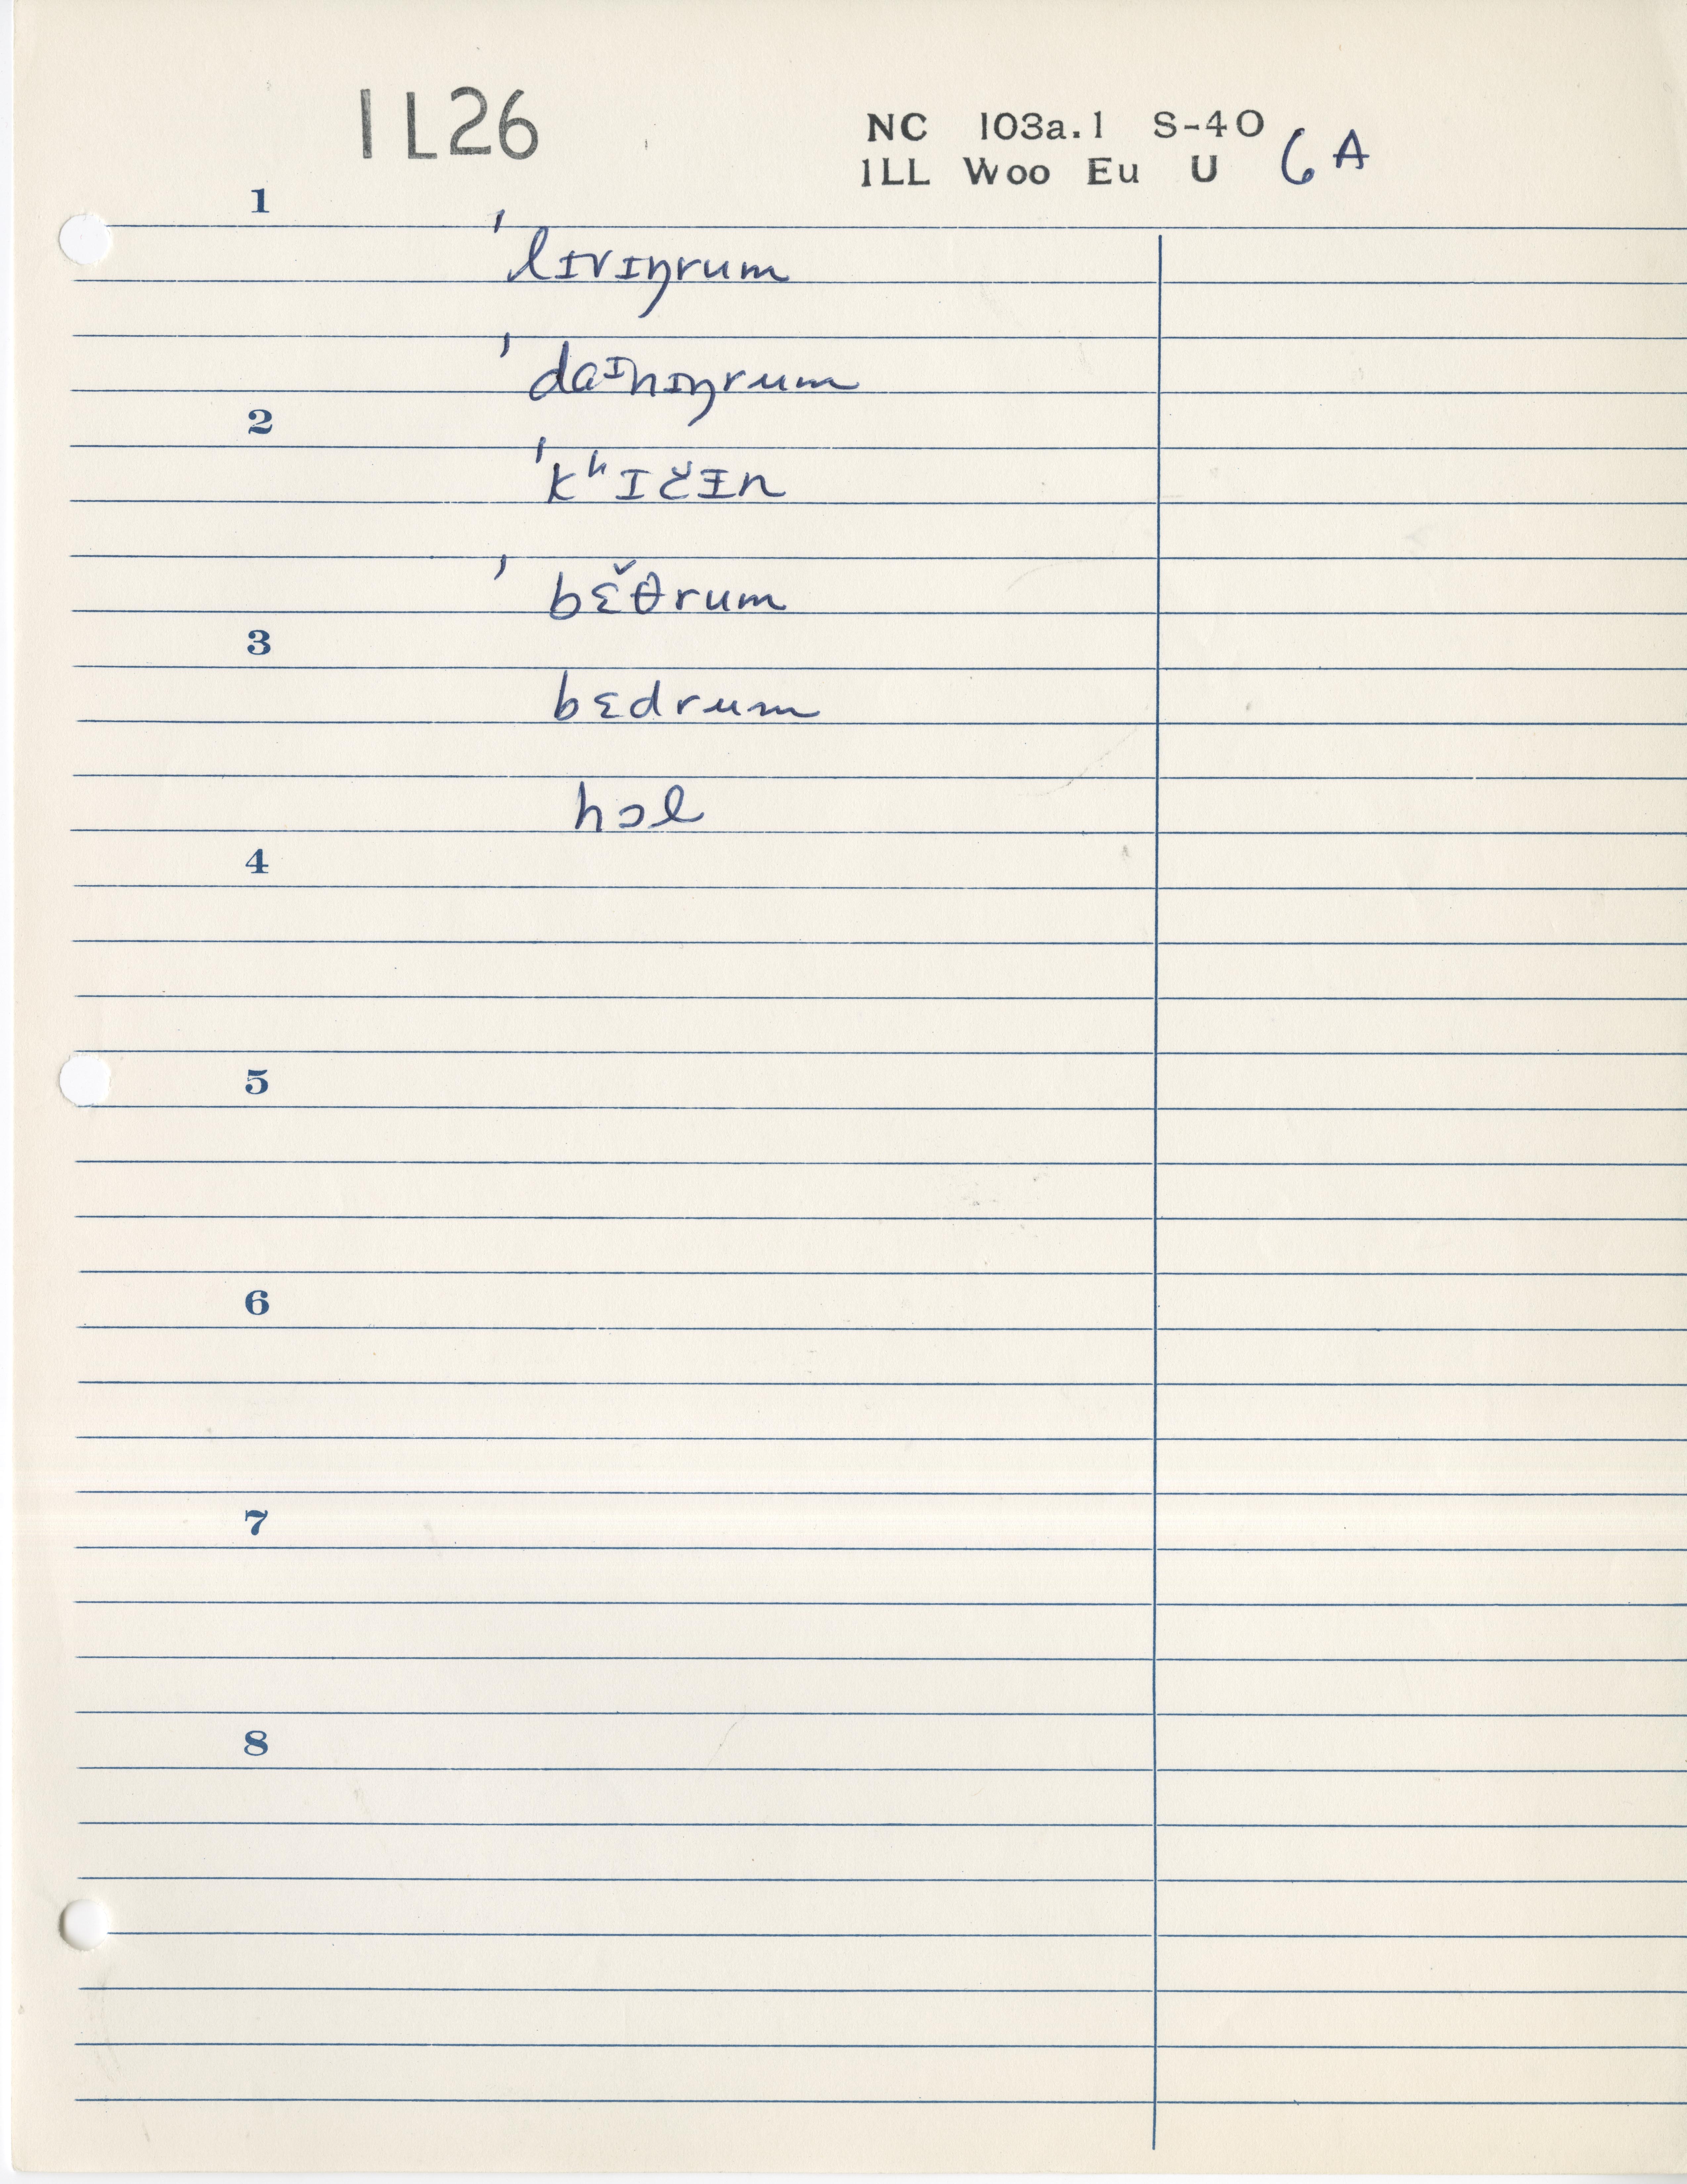 1L26
NC 103a.1 S-40 6A
1LL Woo Eu U
1
ˈlɪvɪŋrum
ˈdaᶦnɪŋrum
2
ˈkʰɪčɪ̵n
ˈbɛ̌θrum
3
bɛdrum
hɔl
4
5
6
7
8